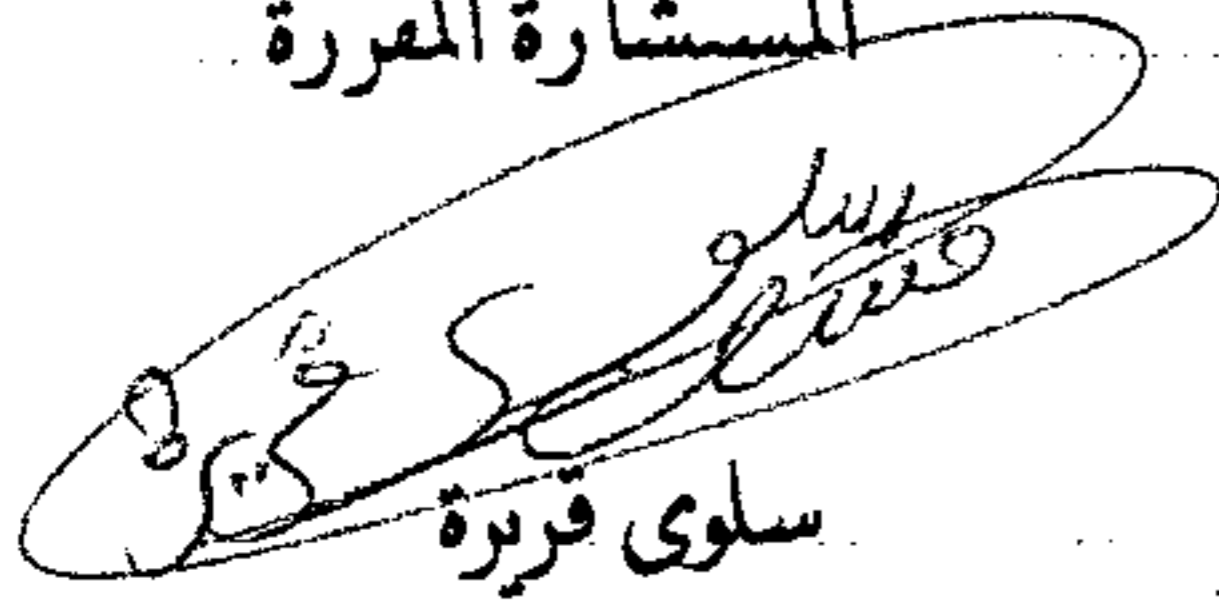 المستشارة المقررة
سلوى قريرة